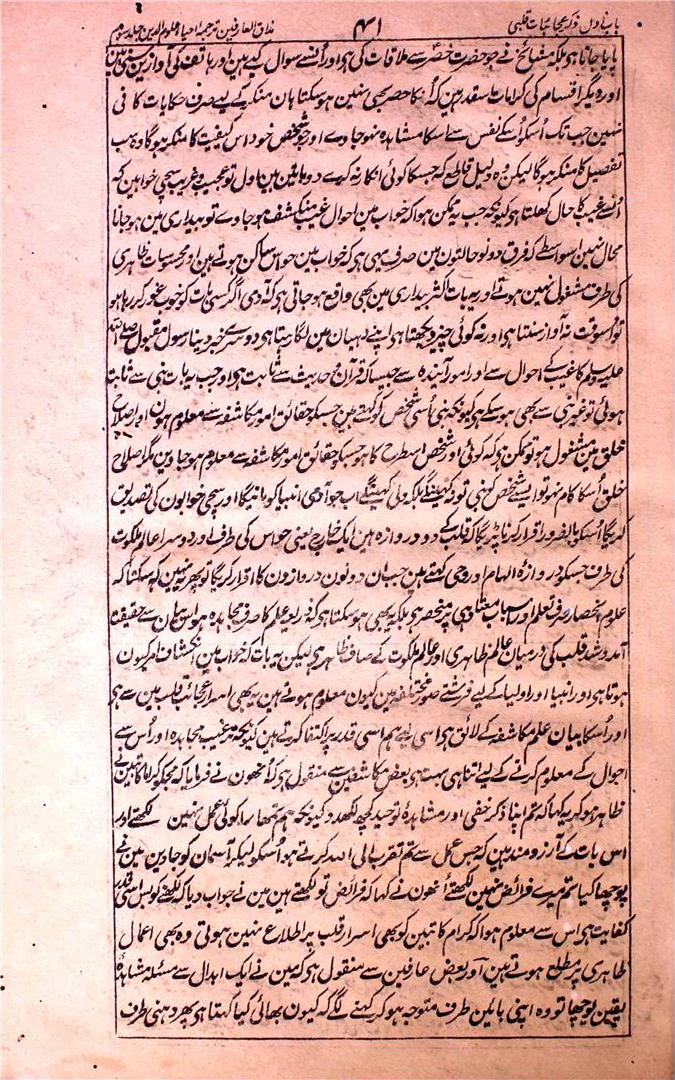 باب اول ذکر عجائبات قلبی ۴۱ مذاق العارفین ترجمہ احیاء علوم الدین جلد سوم
پایا جاتا ہی بلکہ مشائخ نے جو حضرت خضر سے ملاقات کی ہی اور انسے سوال کیے ہین اور ہاتف کی آوازین سنی ہین
اور دیگر اقسام کی کرامات اسقدر ہین کہ اُنکا حصر بھی نہین ہوسکتا ہان منکر کے لیے صرف حکایات کافی
نہین جب تک اُسکو اُسکے نفس سے اسکا مشاہدہ نہو جاوے اور جو شخص خود اس کیفیت کا منکر ہوگا وہ سب
تفصیل کا منکر ہوگا لیکن وہ دلیل قاطع کہ جسکا کوئی انکار نہ کرے دو باتین ہین اول تو عجیب و غریب سچی خوابین کہ
اُنسے غیب کا حال کھلتا ہی کیونکہ جب یہ ممکن ہوا کہ خواب مین احوال غیب منکشف ہو جاوے تو بیداری مین ہو جانا
محال نہین اسواسطے کہ فرق دونو حالتون مین صرف یہی ہی کہ خواب مین حواس ساکن ہوتے ہین اور محسوسات ظاہری
کی طرف مشغول نہین ہوتے اور یہ بات اکثر بیداری مین بھی واقع ہو جاتی ہی کہ آدمی اگر کسی بات کو خوب غور کر رہا ہو
تو اُسوقت نہ آواز سنتا ہی اور نہ کوئی چیز دیکھتا ہی اپنے دھیان مین لگا رہتا ہی دوسرے خبر دینا رسول مقبول صلی اللہ
علیہ وسلم کا غیب کے احوال سے اور امور آیندہ سے جیسا کہ قرآن و حدیث سے ثابت ہی اور جب یہ بات نبی سے ثابت
ہوئی تو غیر نبی سے بھی ہوسکے ہی کیونکہ نبی اُسی شخص کو کہتے ہین جسکو حقائق امور مکاشفہ سے معلوم ہون اور اصلاح
خلق مین مشغول ہو تو ممکن ہی کہ کوئی اور شخص اسطرح کا ہو جسکو حقائق امور مکاشفہ سے معلوم ہو جاوین مگر اصلاح
خلق اُسکا کام نہو تو ایسے شخص کو نبی تو نہ کہینگے بلکہ ولی کہینگے اب جو آدمی انبیا کو مانیگا اور سچی خوابون کی تصدیق
کریگا اُسکو بالضرور اقرار کرنا پڑیگا کہ قلب کے دو دروازہ ہین ایک خارج یعنی حواس کی طرف اور دوسرا عالم ملکوت
کی طرف جسکو دروازہ الہام اور وحی کہتے ہین جب ان دونون دروازون کا اقرار کریگا تو پھر یہ نہین کہہ سکتا کہ
علوم انحصار صرف تعلم اور اسباب معتاد ہی پر منحصر ہی بلکہ یہ بھی ہوسکتا ہی کہ ذریعہ علم کا صرف مجاہدہ ہو اس بیان سے حقیقت
آمدوشد قلب کی درمیان عالم ظاہری اور عالم ملکوت کے صاف ظاہر ہی لیکن یہ بات کہ خواب مین انکشاف امر کیون
ہوتا ہی اور انبیا اور اولیا کے لیے فرشتے صور مختلفہ مین کیون معلوم ہوتے ہین یہ بھی اسرار عجائب قلب مین سے ہی
اور اُسکا بیان علم مکاشفہ کے لائق ہی اسی لیے ہم اسی قدر پر اکتفا کرتے ہین کیونکہ ترغیب مجاہدہ اور اُس سے
احوال کے معلوم کرنے کے لیے اتنا ہی بہت ہی بعض مکاشفین سے منقول ہی کہ اُنھون نے فرمایا کہ مجھکو کراماً کاتبین نے
ظاہر ہوکر یہ کہا کہ تم اپنا ذکر خفی اور مشاہدہ توحید کچھ لکھدو کیونکہ ہم تمھارا کوئی عمل نہین لکھتے اور
اس بات کے آرزومند ہین کہ جس عمل سے تم تقرب الی اللہ کرتے ہو اُسکو لیکر آسمان کو جاوین مین نے
پوچھا کیا تم میرے فرائض نہین لکھتے اُنھون نے کہا کہ فرائض تو لکھتے ہین مین نے جواب دیا کہ لکھنے کو بس اسی قدر
کفایت ہی اس سے معلوم ہوا کہ کرام کاتبین کو بھی اسرار قلب پر اطلاع نہین ہوتی وہ بھی اعمال
ظاہری پر مطلع ہوتے ہین اور بعض عارفین سے منقول ہی کہ مین نے ایک ابدال سے مسئلہ مشاہدہ
یقین پوچھا تو وہ اپنی بائین طرف متوجہ ہو کر کہنے لگے کہ کیون بھائی کیا کہتا ہی پھر دہنی طرف